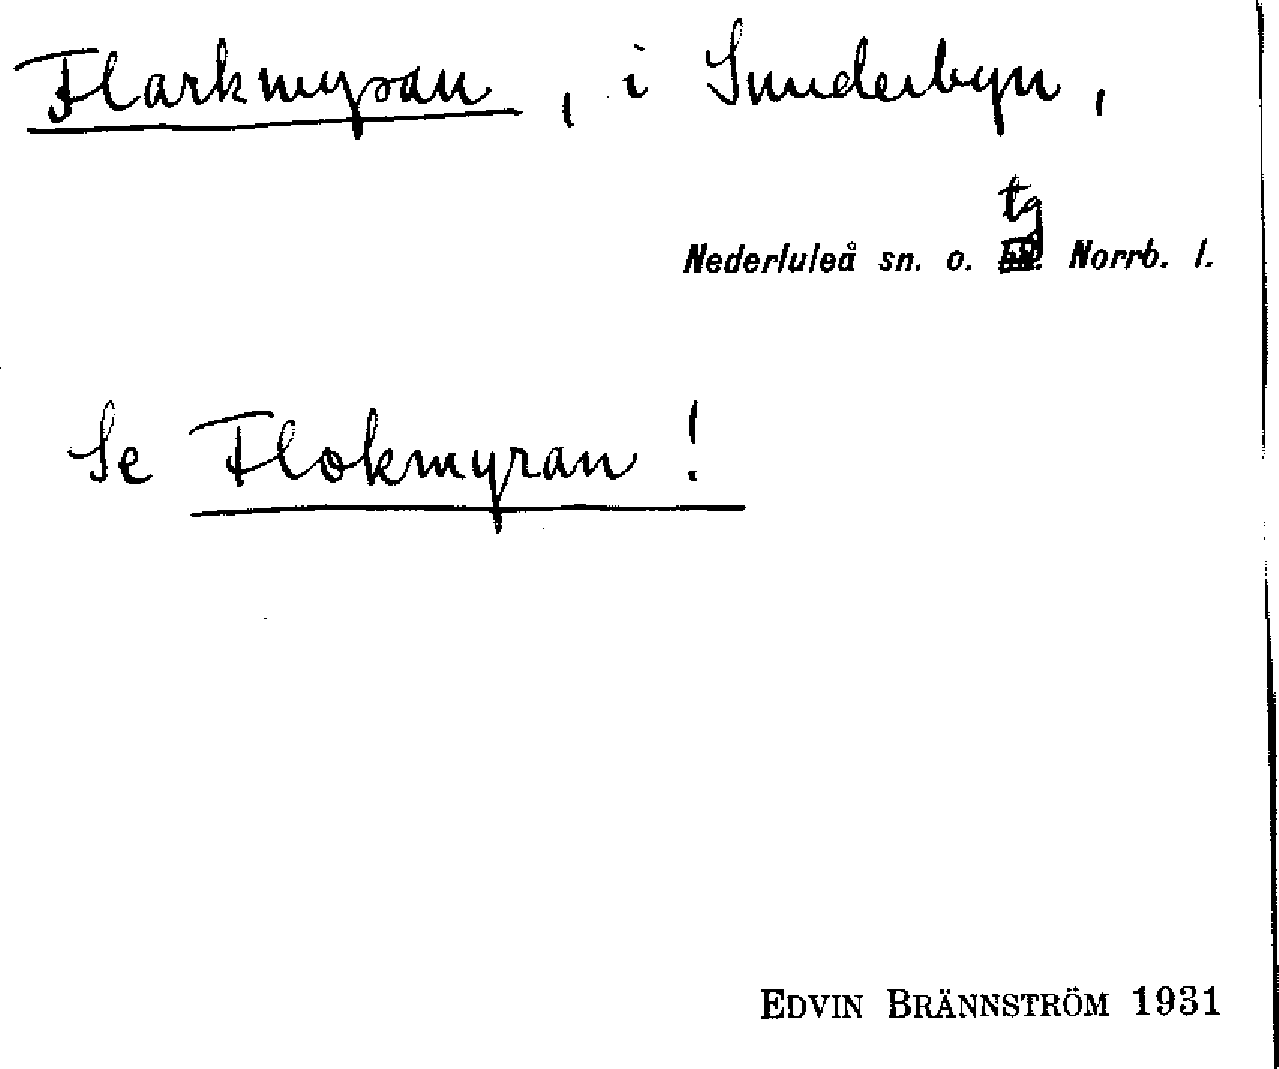 Flarkmyran, i Sunderbyn,
tg
Nederluleå sn. o. Norrb. l.
Se Flokmyran!
EDVIN BRÄNNSTRÖM 1931